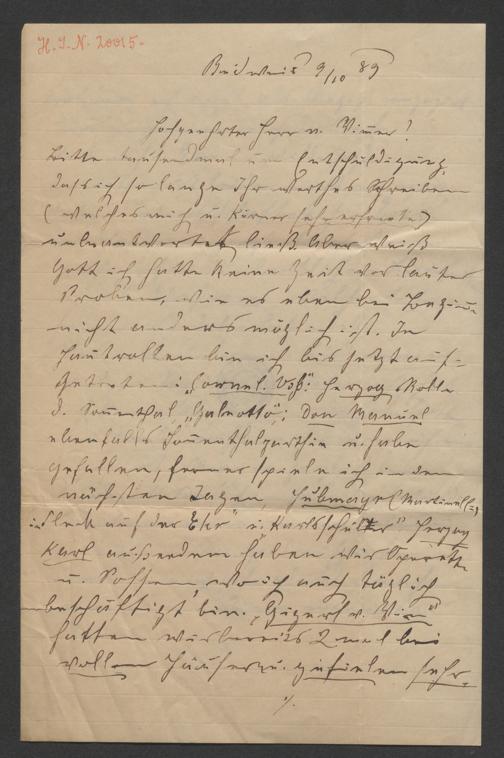 H. I. N. 20015.
Budweis 9/10 89
Hochgeehrter Herr v. Vimer!
Bitte tausendmal um Entschuldigung,
dass ich so lange Ihr werthes Schreiben
(welches mich u. sehr erfreute)
unbeantwortet ließ. Aber weiß
Gott ich hatte keine Zeit vor lauter
Proben, wie es eben bei Beginn
nicht anders möglich ist. In
Hautrollen bin ich bis jetzt auf=
getreten: „Cornel. Voß“: Herzog Rolle
d. Sonnenthal „Galeotto“; Don Manuel
ebenfalls Sonnenthalparthie u. habe
gefallen, ferner spiele ich in den
nächsten Tagen, Hubmayr (Martinelli)
i. „Fleck auf der Ehr“ u. Karlsschüler“ Herzog
Karl außerdem haben wir Operette
u. Possen wo ich auch täglich
beschäftigt bin. „Gigerl v. Wien“
hatten wir bereits 2 mal bei
vollen Häuser u. gefielen sehr.
./.